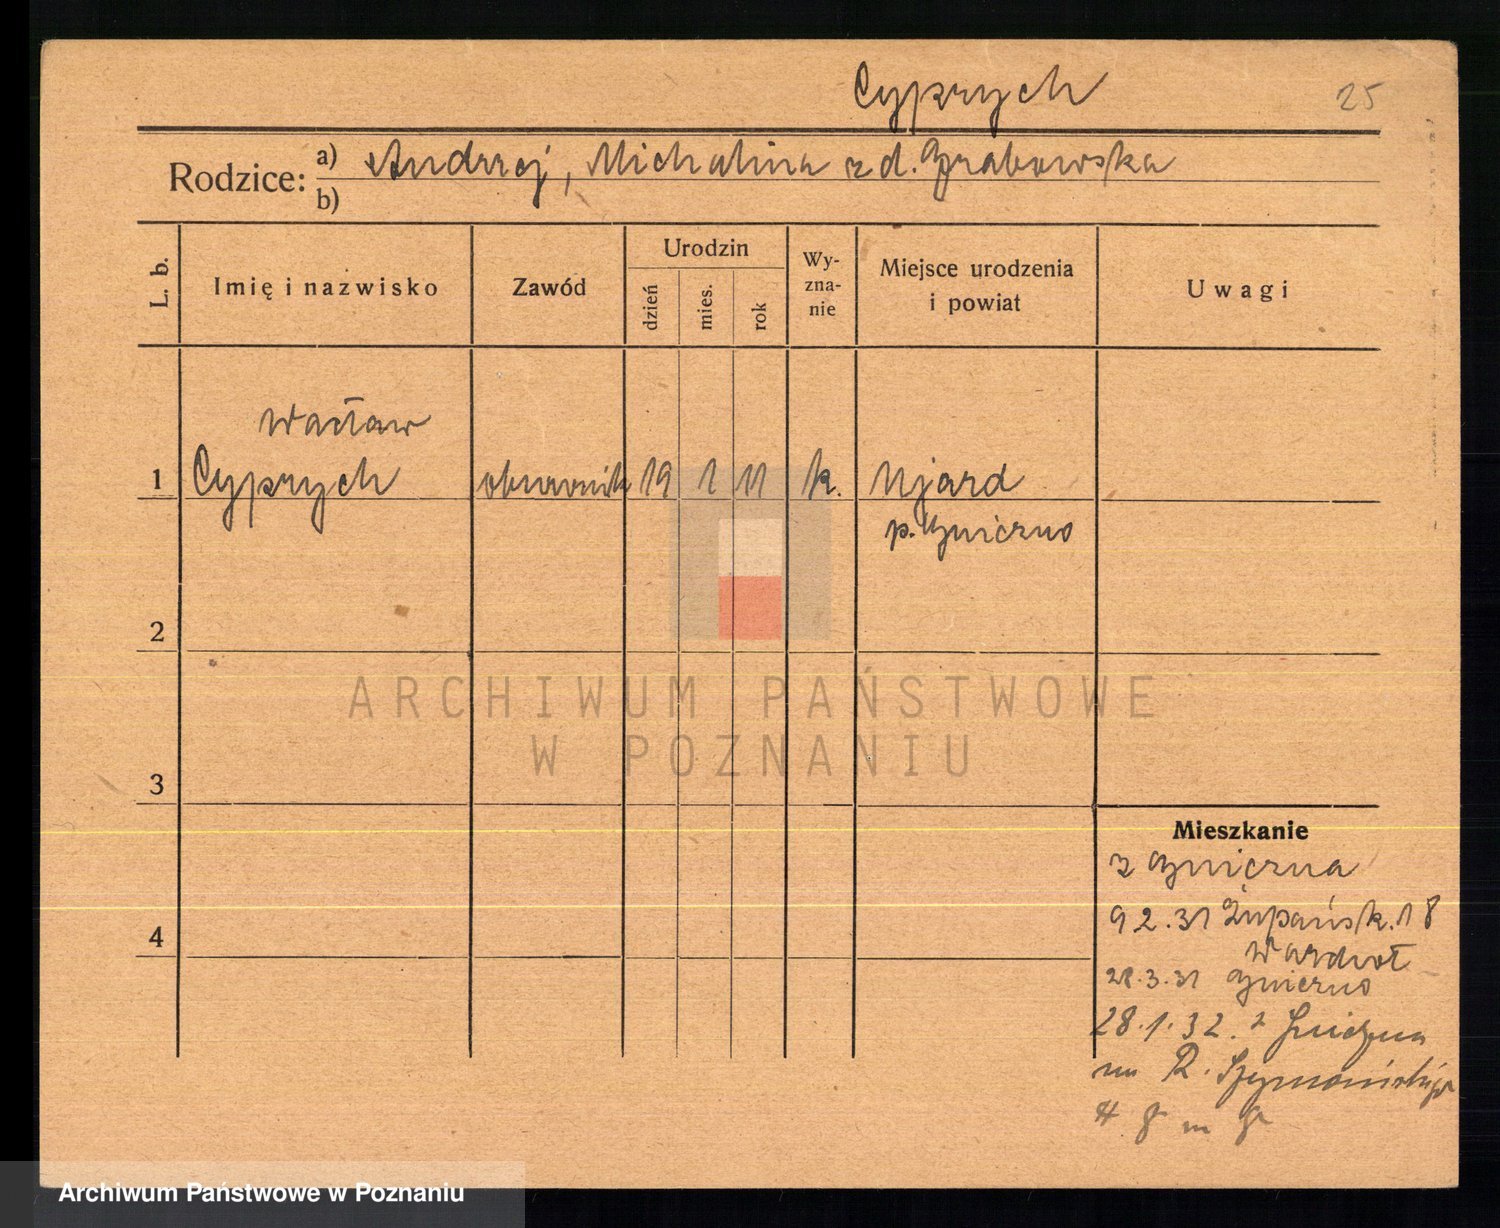 Cyprych
25
Rodzice: a) Andrzej, Michalina z d. Grabowska
b)
L. b. Imię i nazwisko Zawód Urodzin dzień mies. rok Wyznanie Miejsce urodzenia i powiat Uwagi
Wacław
1 Cyprych 19 1 11 k. Ujazd
p. Gniezno
2
ARCHIWUM PAŃSTWOWE
W POZNANIU
3
Mieszkanie
z Gniezna
9 2. 31 Żupańsk. 18
4
28. 3. 31 Gniezno
28. 1. 32. z Gniezna
na R. Szymańskiego
Archiwum Państwowe w Poznaniu